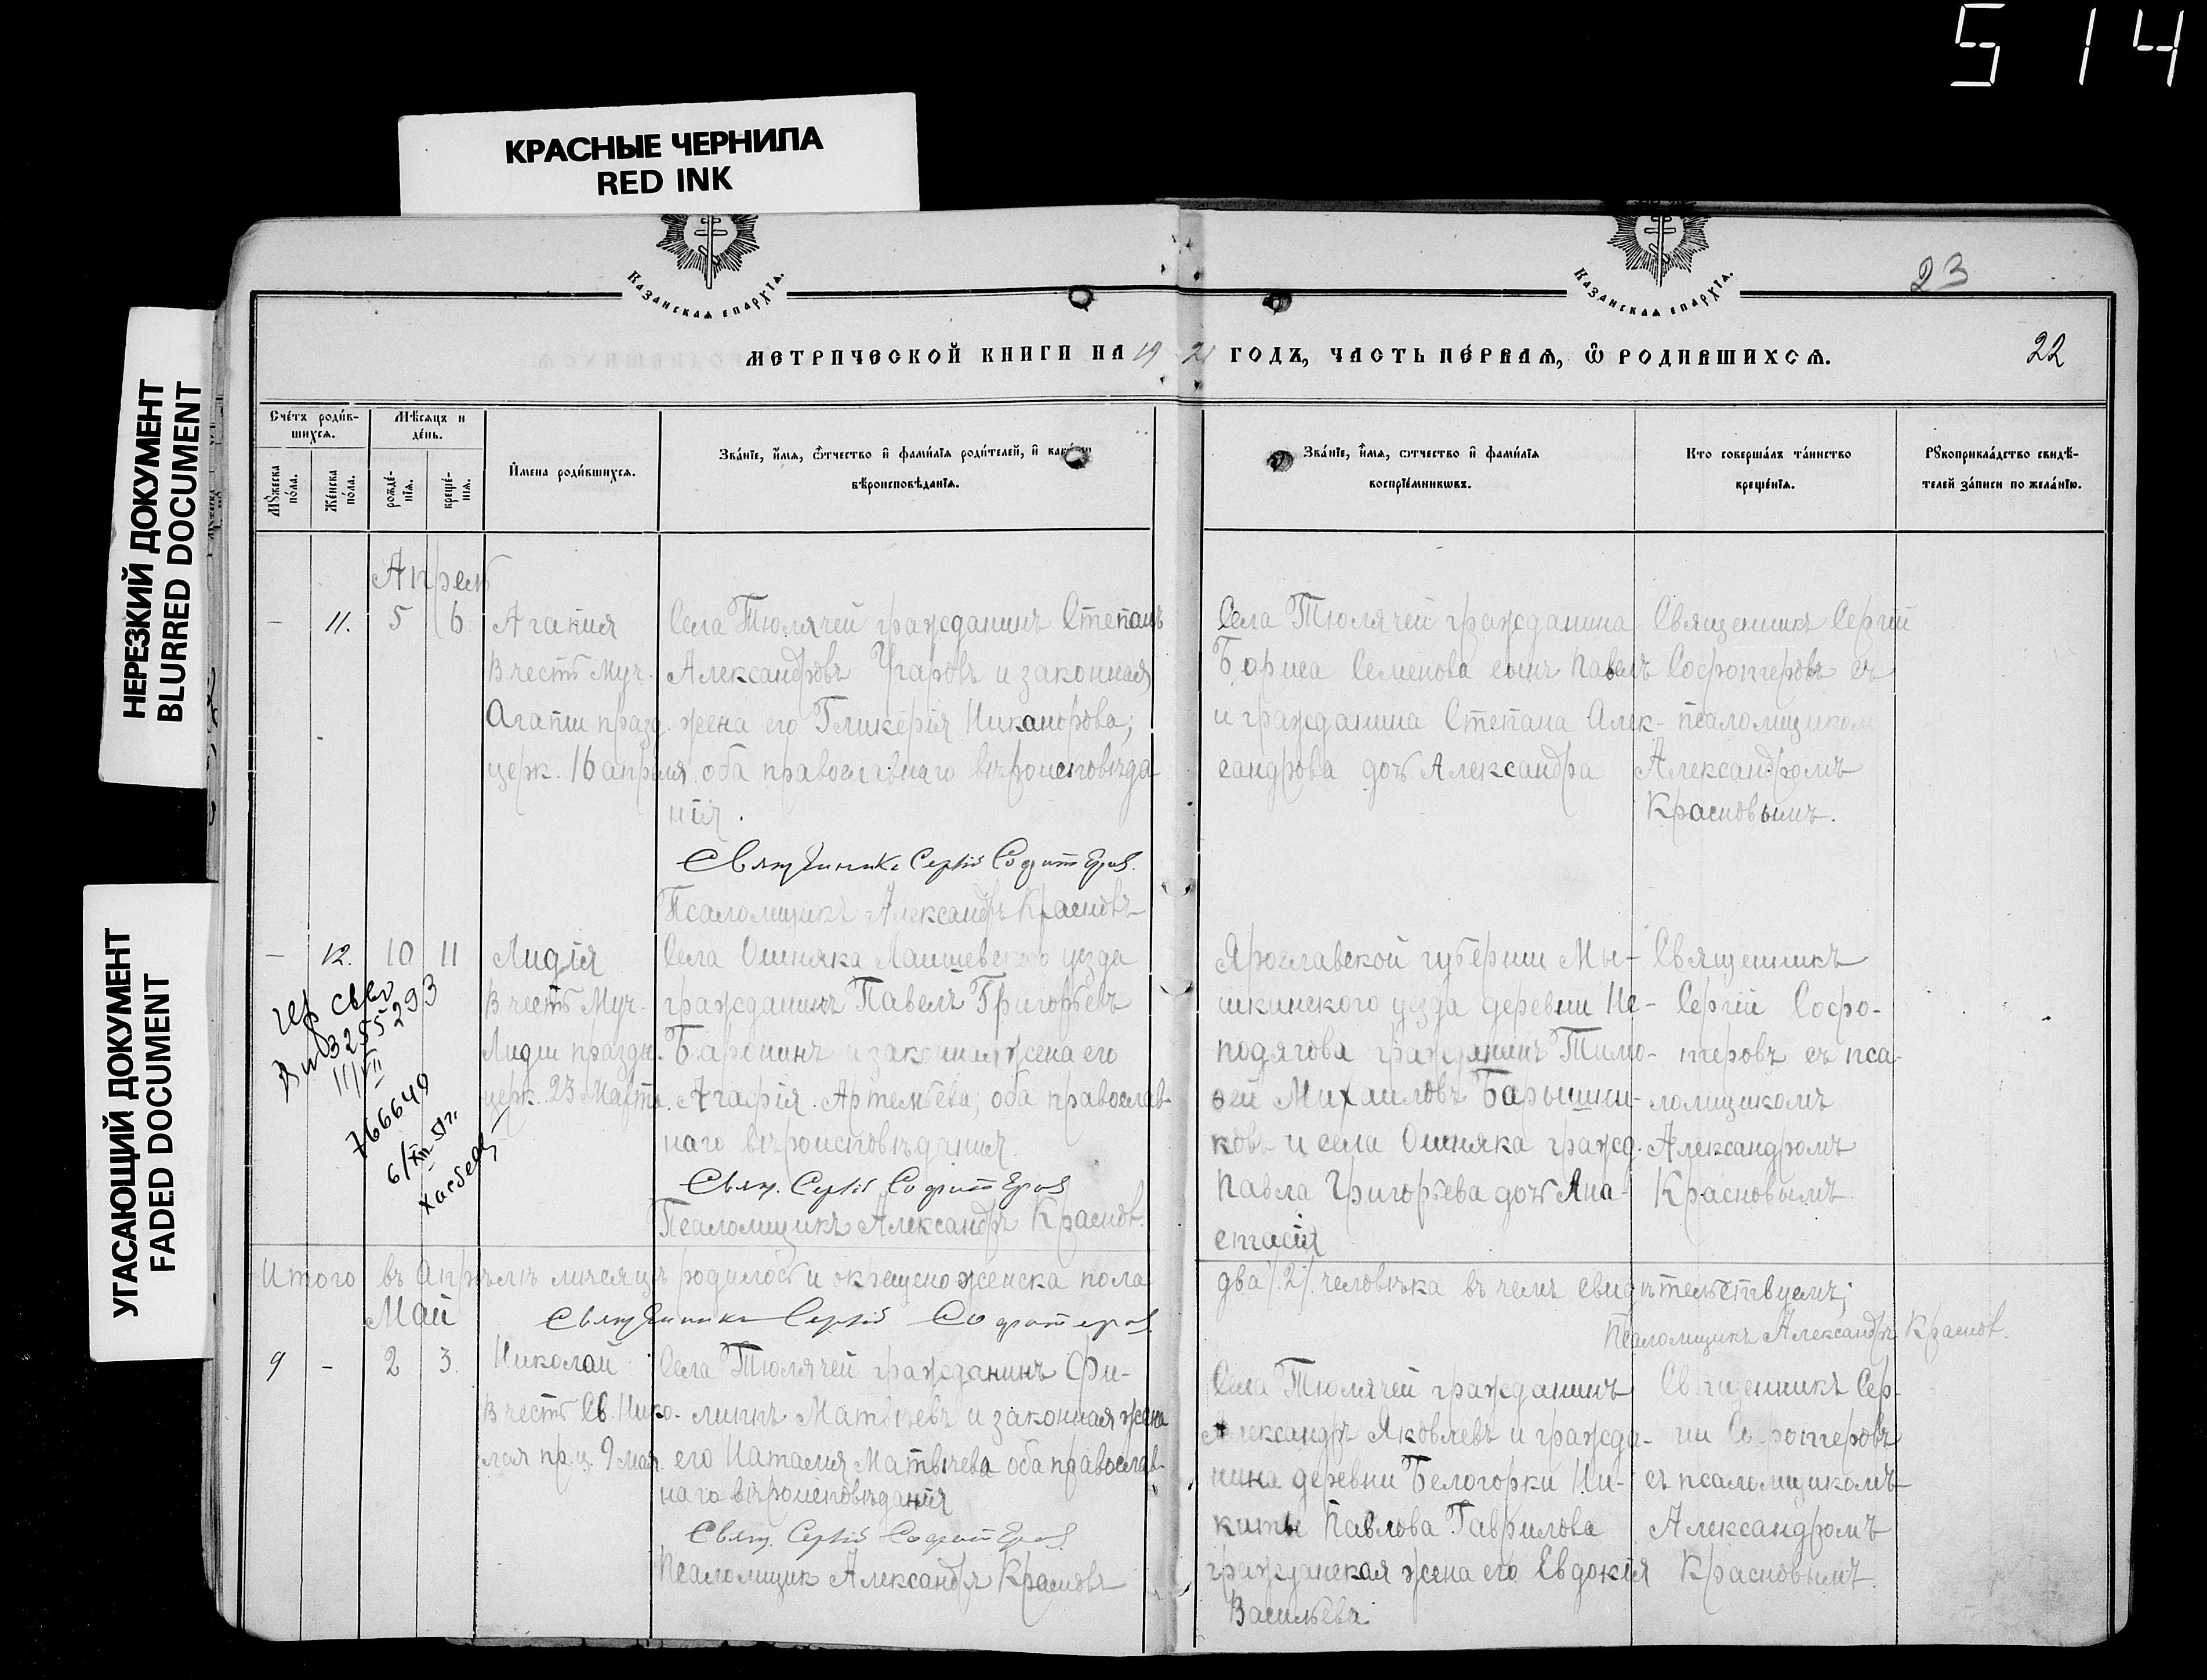 5 14
КРАСНЫЕ ЧЕРНИЛА
RED INK
НЕРЕЗКИЙ ДОКУМЕНТ
BLURRED DOCUMENT
УГАСАЮЩИЙ ДОКУМЕНТ
FADED DOCUMENT
Казанская епархїа.
Казанская епархїа.
23
МЕТРИЧЕСКОЙ КНИГИ НА 1921 ГОДЪ, ЧАСТЬ ПЕ́РВАѦ, Ѡ РОДИВШИХСѦ.
22
Счéтъ роди́в-
шихсѧ.
Мѣсѧцъ и
дéнь.
Мꙋ́жеска
пóла.
Жéнска
пóла.
рождé-
нїѧ.
крещé-
нїѧ.
И҆мена роди́вшихсѧ.
Звáнїе, и҆́мѧ, ѻ҆́тчество и҆ фами́лїѧ роди́телей, и҆
вѣроисповѣ́данїѧ.
Звáнїе, и҆́мѧ, ѻ҆тчество и҆ фами́лїѧ
воспрїéмникѡвъ.
Кто совершáлъ тáинство
крещéнїѧ.
Рꙋкоприклáдство свидѣ́-
телей зáписи по желáнїю.
Апрель
- 11. 5 6
Агапия
В честь Муч.
Агапии празд.
церк. 16 апреля.
Села Тюлячей гражданинъ Степанъ
Александровъ Угаровъ и законная
жена его Гликерія Никанорова;
оба православнаго вѣроисповѣда
нія.
Священникъ Сергій Софотеров.
Псаломщикъ Александръ Красновъ
Села Тюлячей гражданина
Бориса Семенова сынъ Павелъ
и гражданина Степана Алек-
сандрова дочь Александра
Священникъ Сергій
Софотеровъ съ
псаломщиком
Александромъ
Красновымъ.
- 12. 10 11
Лидія
В честь Муч.
Лидіи праздн.
церк. 23 Марта.
Села Ошняка Лаишевскаго уезда
гражданинъ Павелъ Григорьевъ
Баронинъ и законная жена его
Агафія Артемьева; оба православ
наго вѣроисповѣданія.
Свящ. Сергій Софотеров
Псаломщикъ Александръ Красновъ
Ярославской губерніи Мы-
шкинского уезда деревни Не-
подягова гражданинъ Тимо-
фей Михаиловъ Барышни-
ковъ и села Ошняка гражд.
Павла Григорьева дочь Ана-
стасія
Священникъ
Сергій Софо-
теровъ съ пса-
ломщикомъ
Александромъ
Красновымъ
766649
6/XII-51г.
Итого въ Апрѣлѣ месяцѣ родилось и окрещено женска пола
два /.2/. человѣка въ чемъ свидѣтельствуемъ;
Священникъ Сергій Софотеров
Псаломщикъ Александръ Краснов.
Май
9 - 2 3.
Николай
В честь Св. Нико-
лая пр. ц. 9 мая.
Села Тюлячей гражданинъ Фи-
липпъ Матвѣевъ и законная жена
его Наталия Матвѣева оба православ-
наго вѣроисповѣданія
Свящ. Сергій Софотеров
Псаломщик Александръ Красновъ
Села Тюлячей гражданинъ
Александръ Яковлевъ и гражда-
нина деревни Белогорки Ни-
киты Павлова Гаврилова
гражданская жена его Евдокія
Васильева
Священникъ Сер-
гій Софотеровъ
съ псаломщикомъ
Александромъ
Красновымъ.